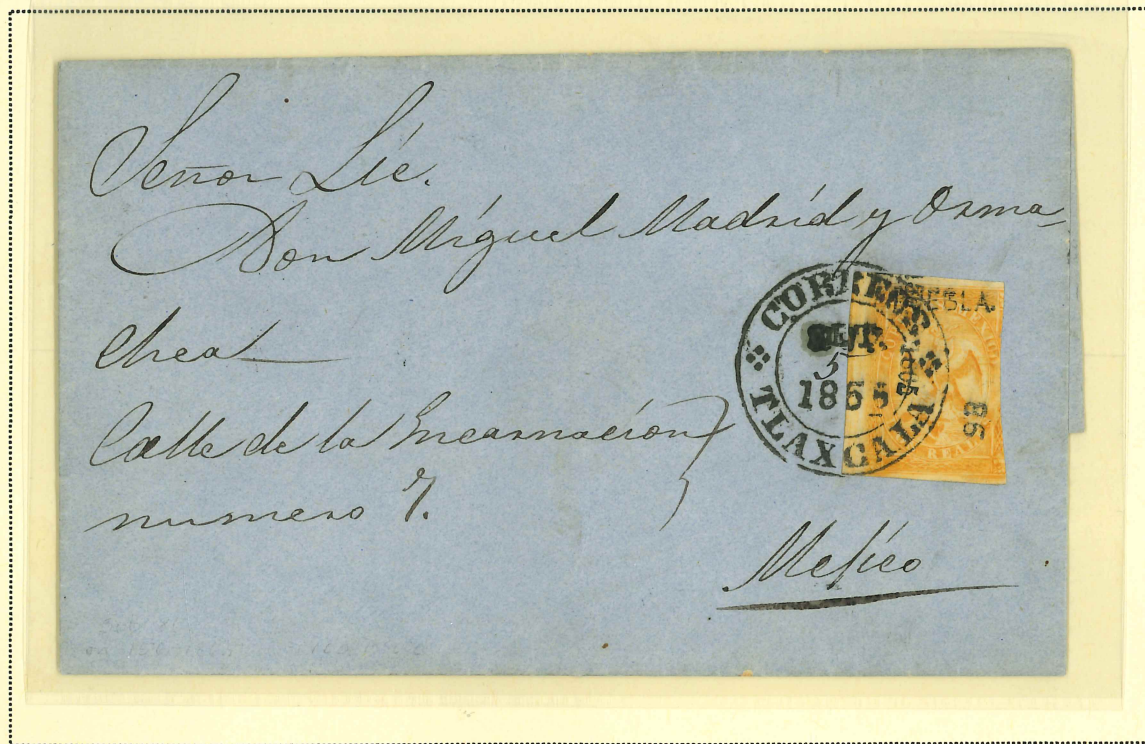 Señor Lic.
Don Miguel Madrid y Orma
chea
Calle de la Encarnación
numero 7.
Mejico
CORREOS
SEPT.
5
1865
TLAXCALA
PUEBLA.
1865
98
REAL